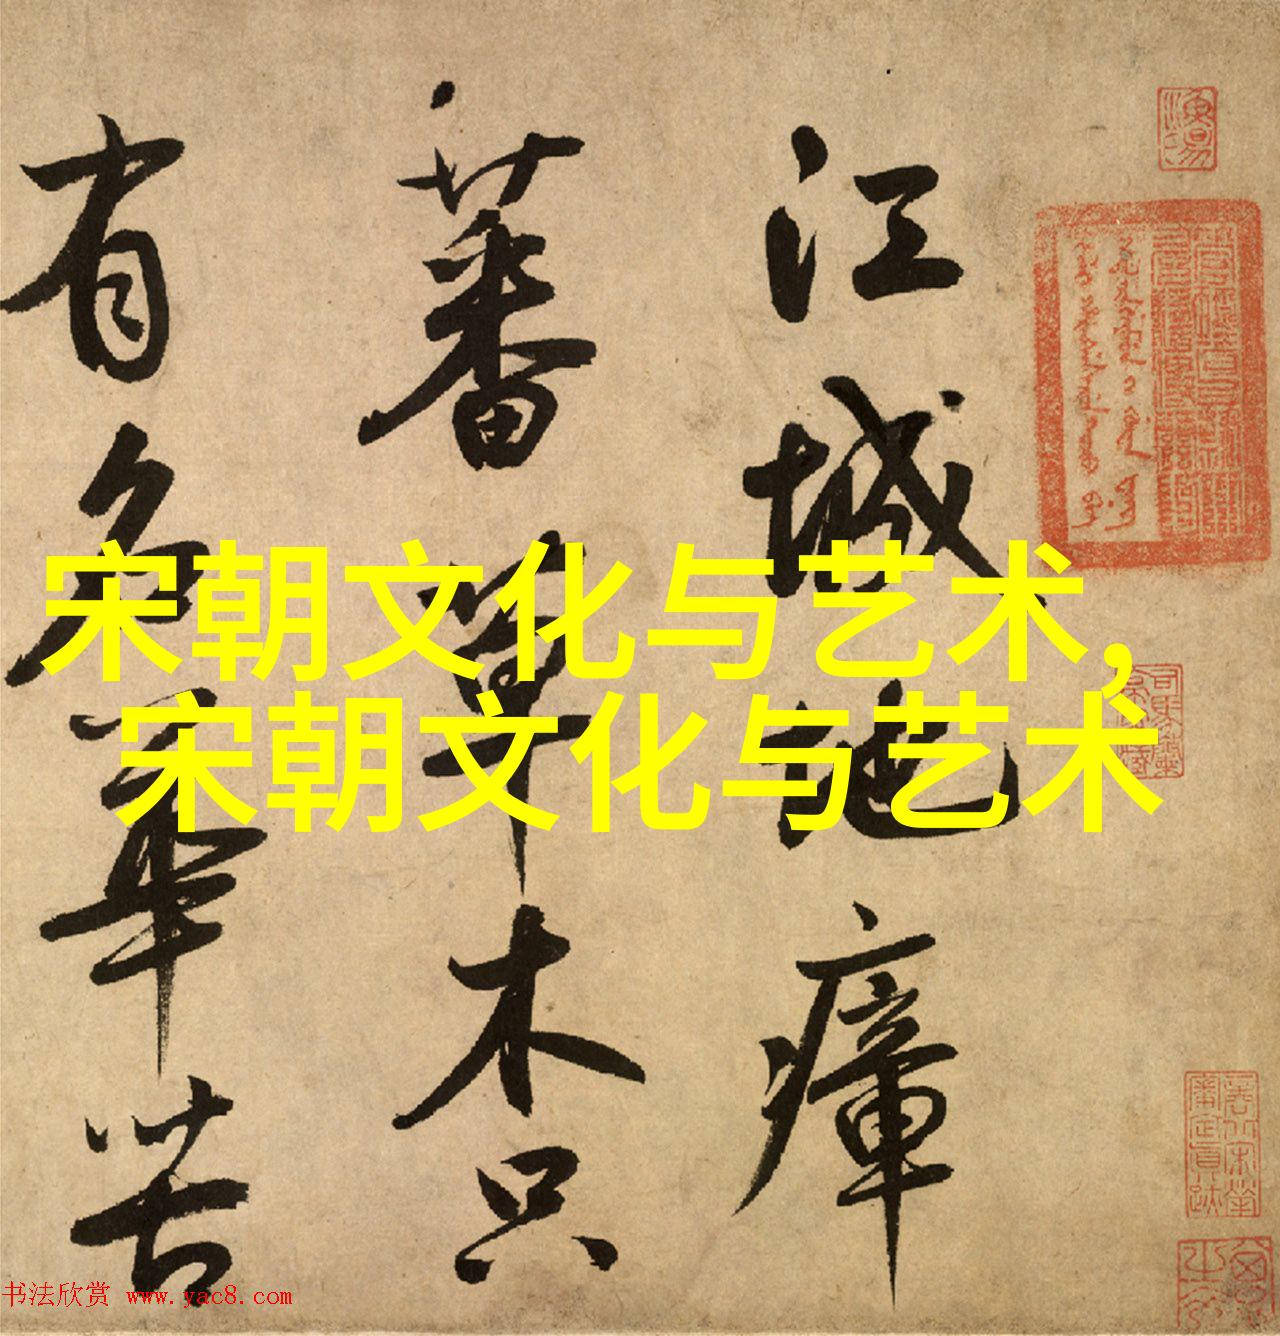 江城地瘴
蕃草木只
有名華苦
宋朝文化与艺术,
宋朝文化与艺术
书法欣赏 www.yac8.com